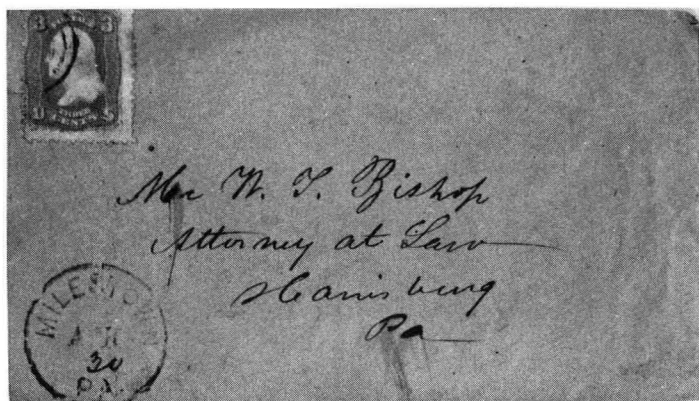 3 3
U S
THREE
CENTS
Mr W. T. Bishop
Attorney at Law
Harrisburg
Pa
MILESTOWN
APR
30
PA.